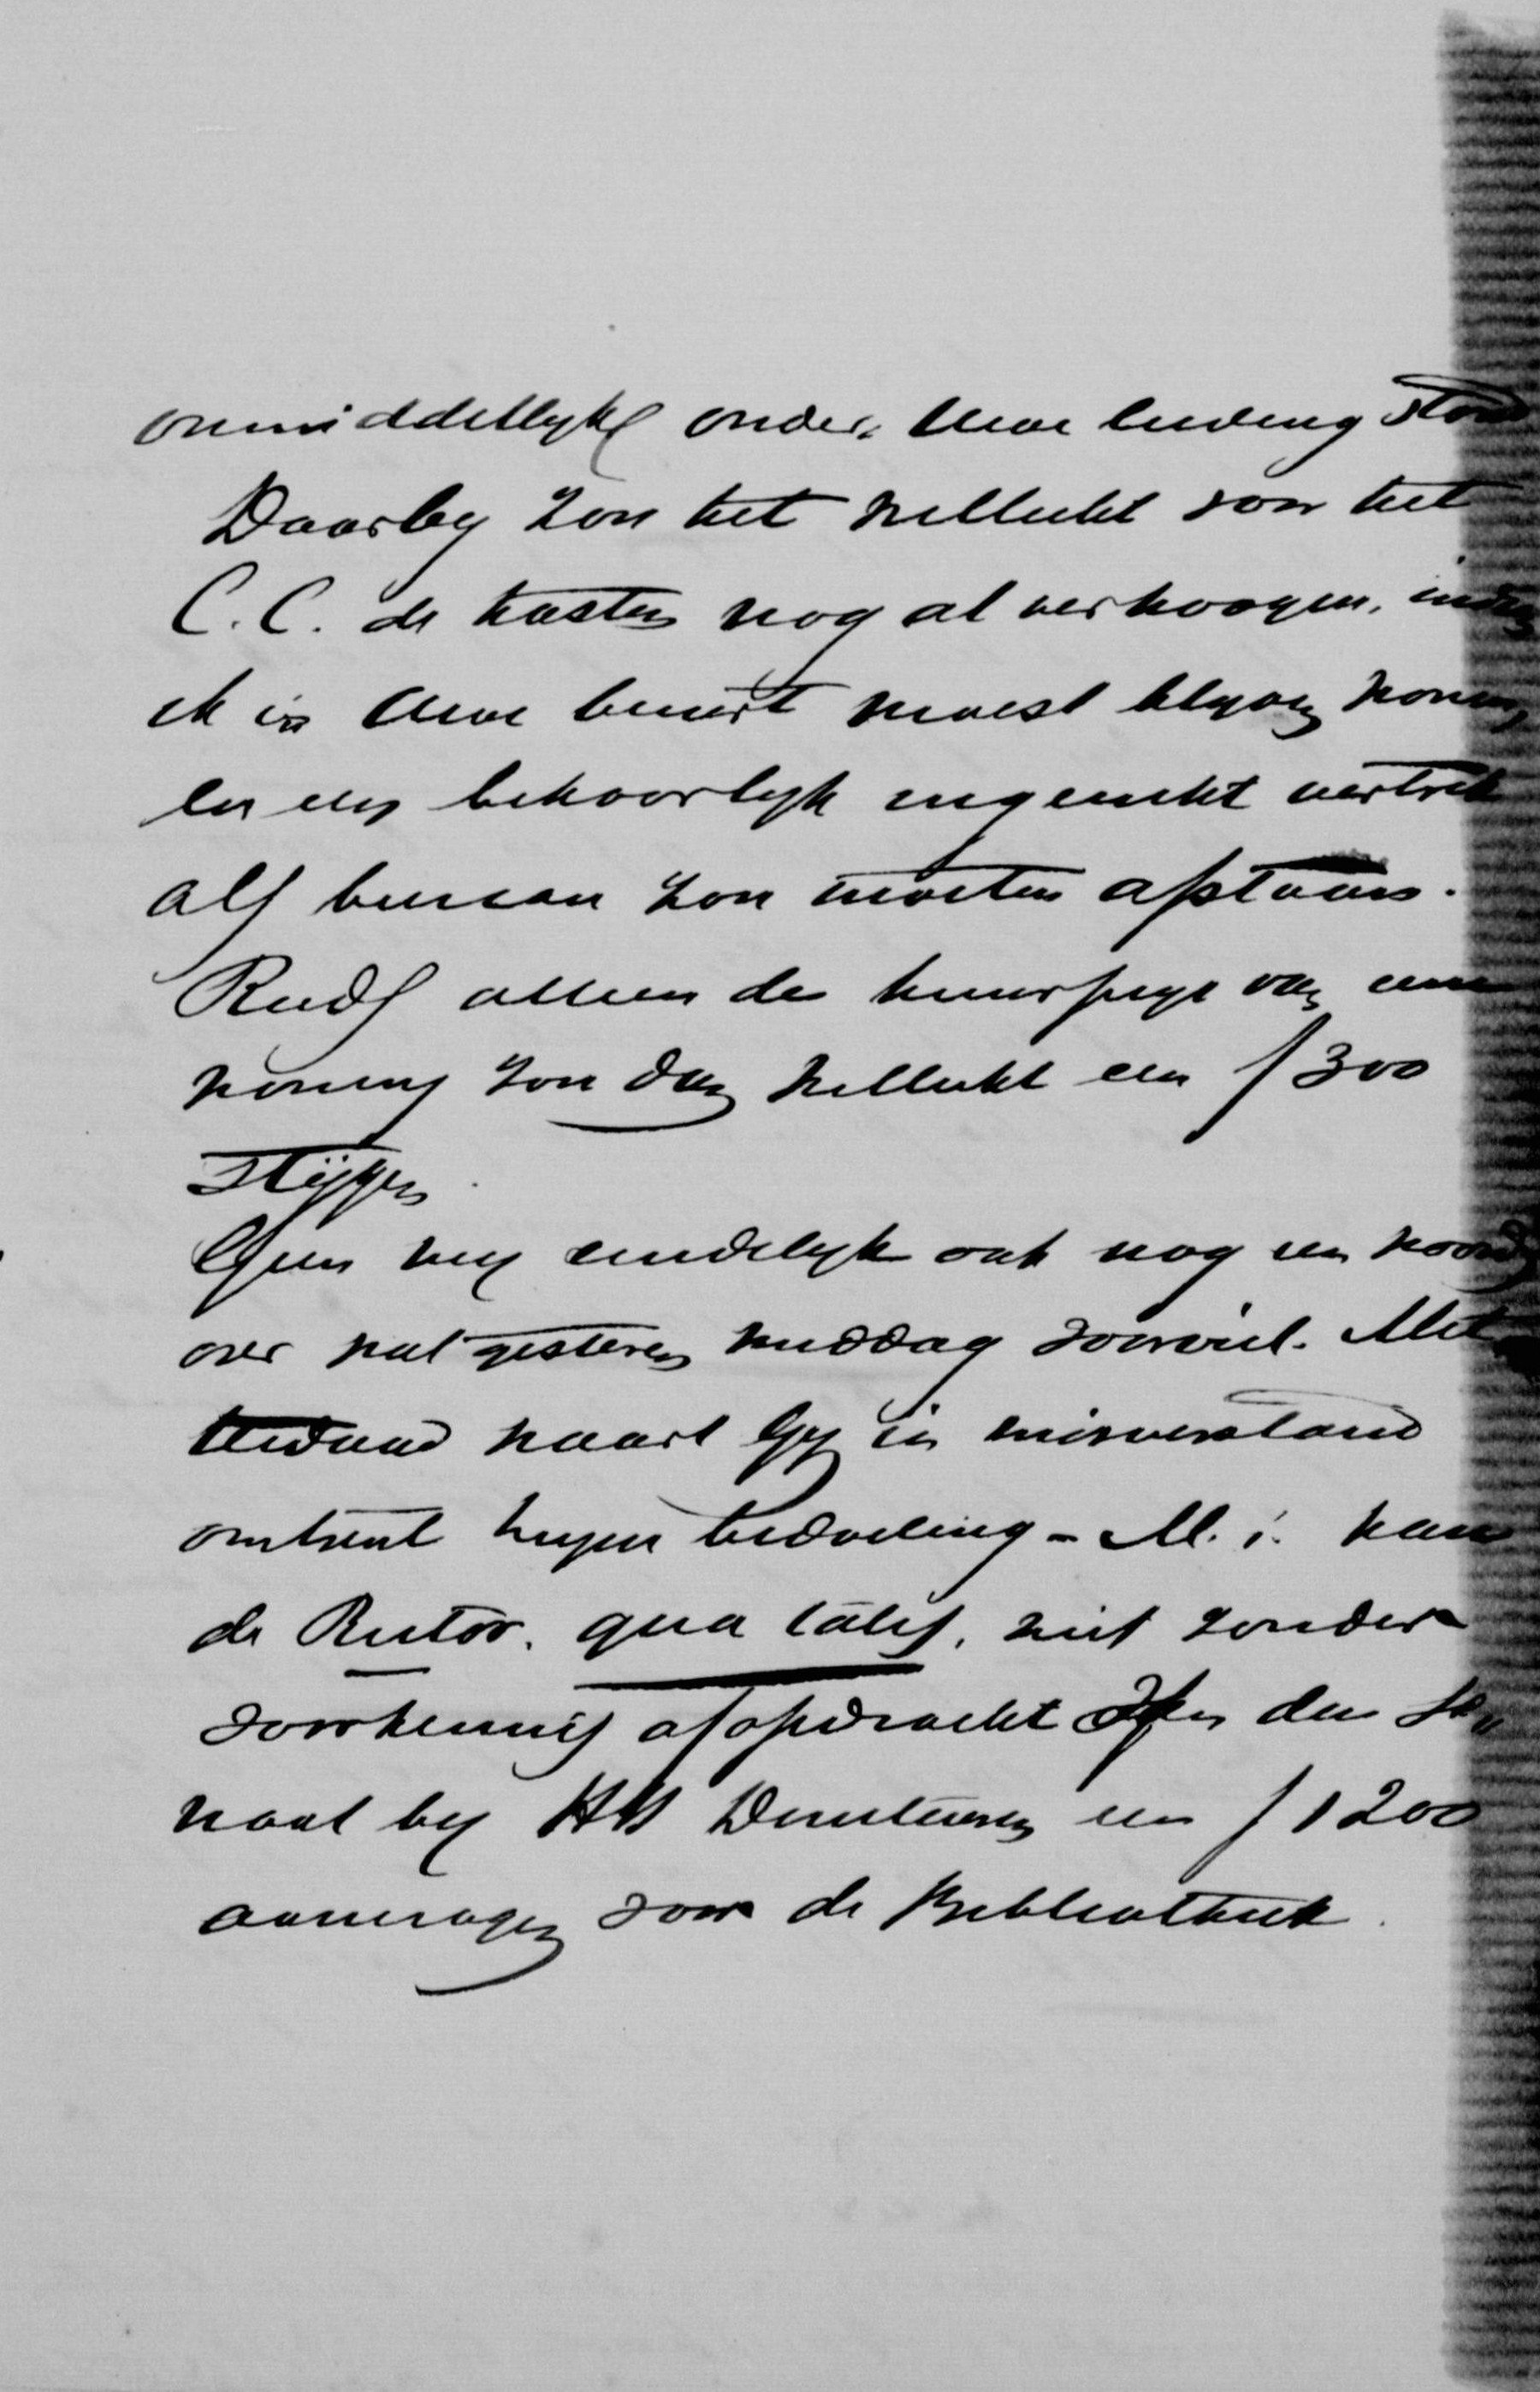 onmiddellyk onder Uwe leiding stond
Daarby zou het wellicht voor het
C.C. de kosten nog al verhoogen, indien
ik in Uwe buurt moest blyven wonen
en een behoorlyk ingericht vertrek
als bureau zou moeten afstaan.
Reeds alleen de huurprys van eene
woning zou dan wellicht een f 300
stijgen
Gun my eindelyk ook nog een woord
over wat gisteren middag voorviel. Met
terdaad waart Gy in misverstand
omtrent myne bedoeling - M. i. kan
de Rector, qua talis, niet zonder
voorkennis of opdracht van den Se„
naat by HH Directeuren een f 1200
aanvragen voor de Bibliotheek.